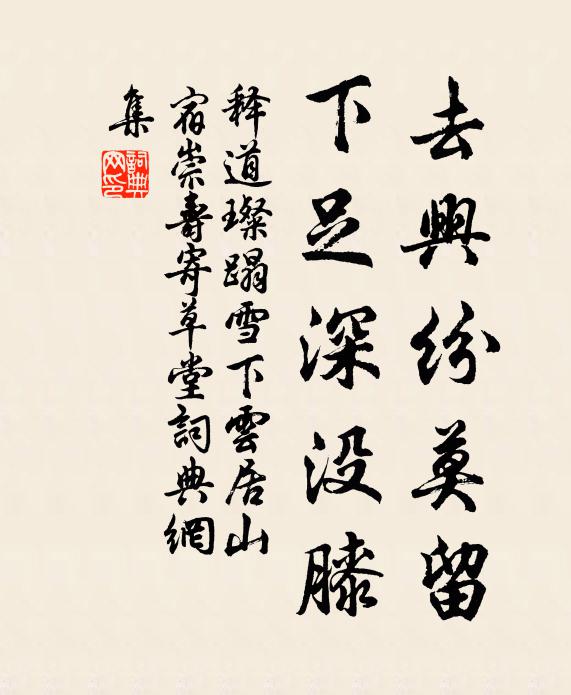 去興紛莫留
下足深没膝
释道璨蹋雪下雲居山
宿崇壽寄草堂詞典網
集
詞典网印